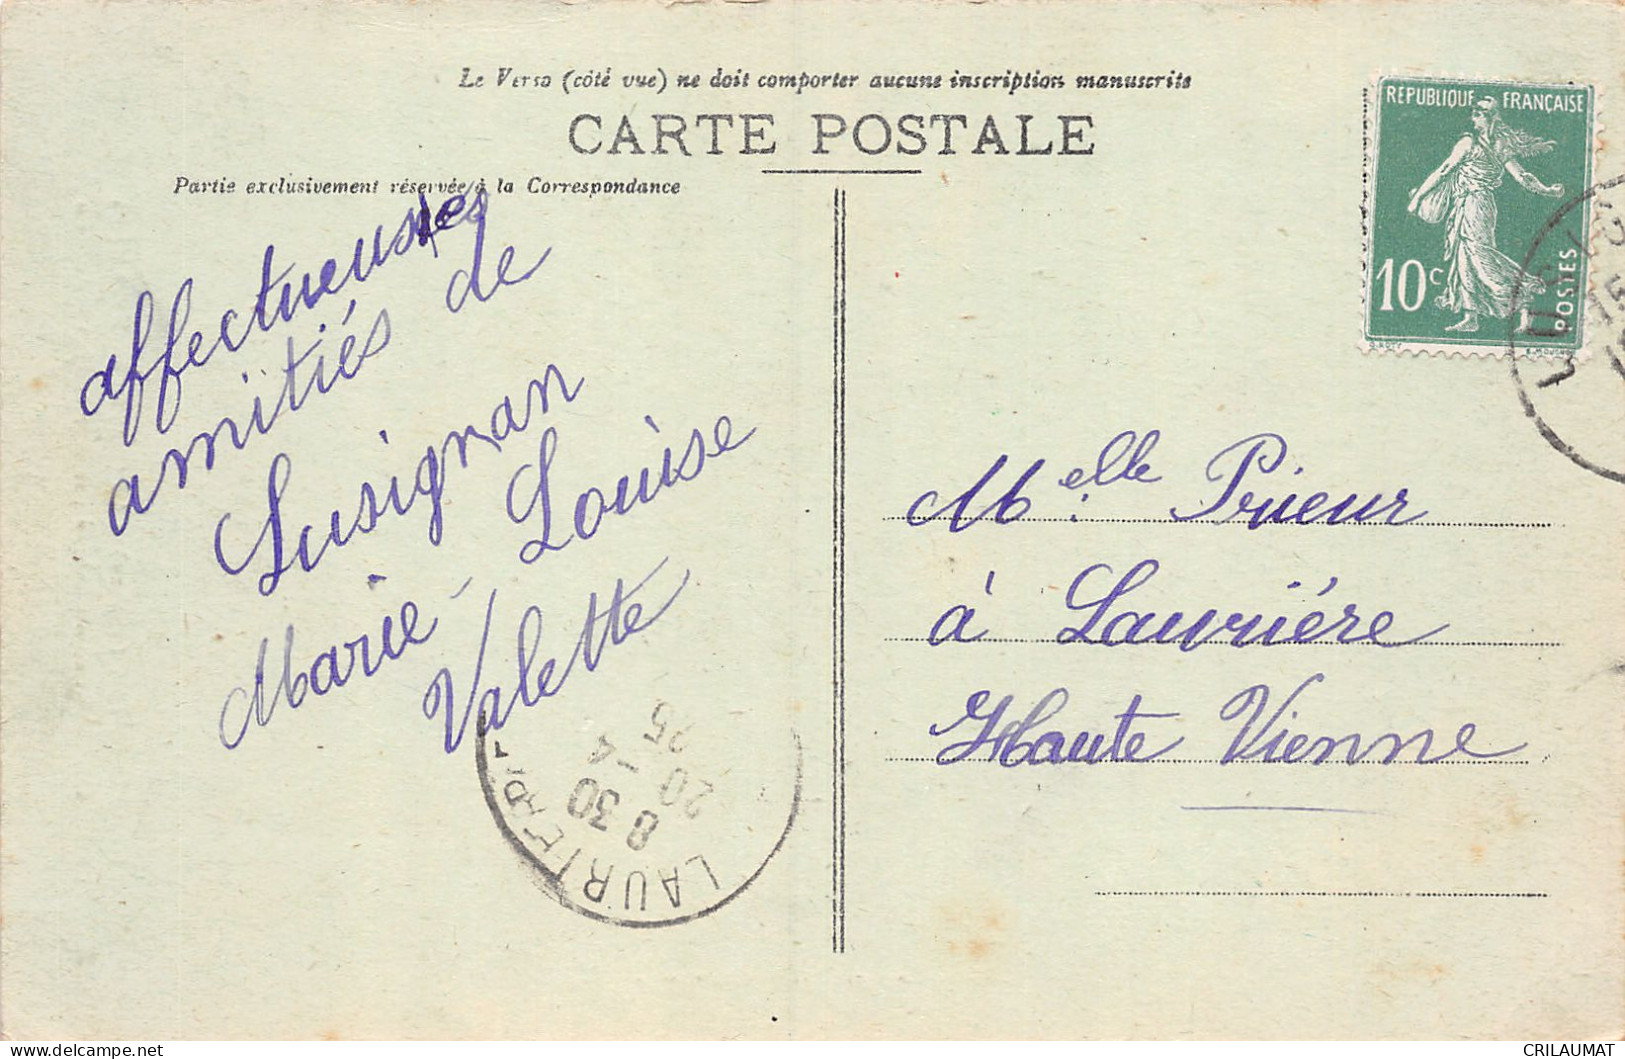 Le Verso (côté vue) ne doit comporter aucune inscription manuscrite
CARTE POSTALE
Partie exclusivement réservée à la Correspondance
REPUBLIQUE FRANÇAISE
10c
POSTES
affectueuses
amitiés de
Lusignan
Marie-Louise
Valette
Melle Prieur
à Lauriére
Haute Vienne
LAURIERE
8 30
20 -4
25
CRILAUMAT